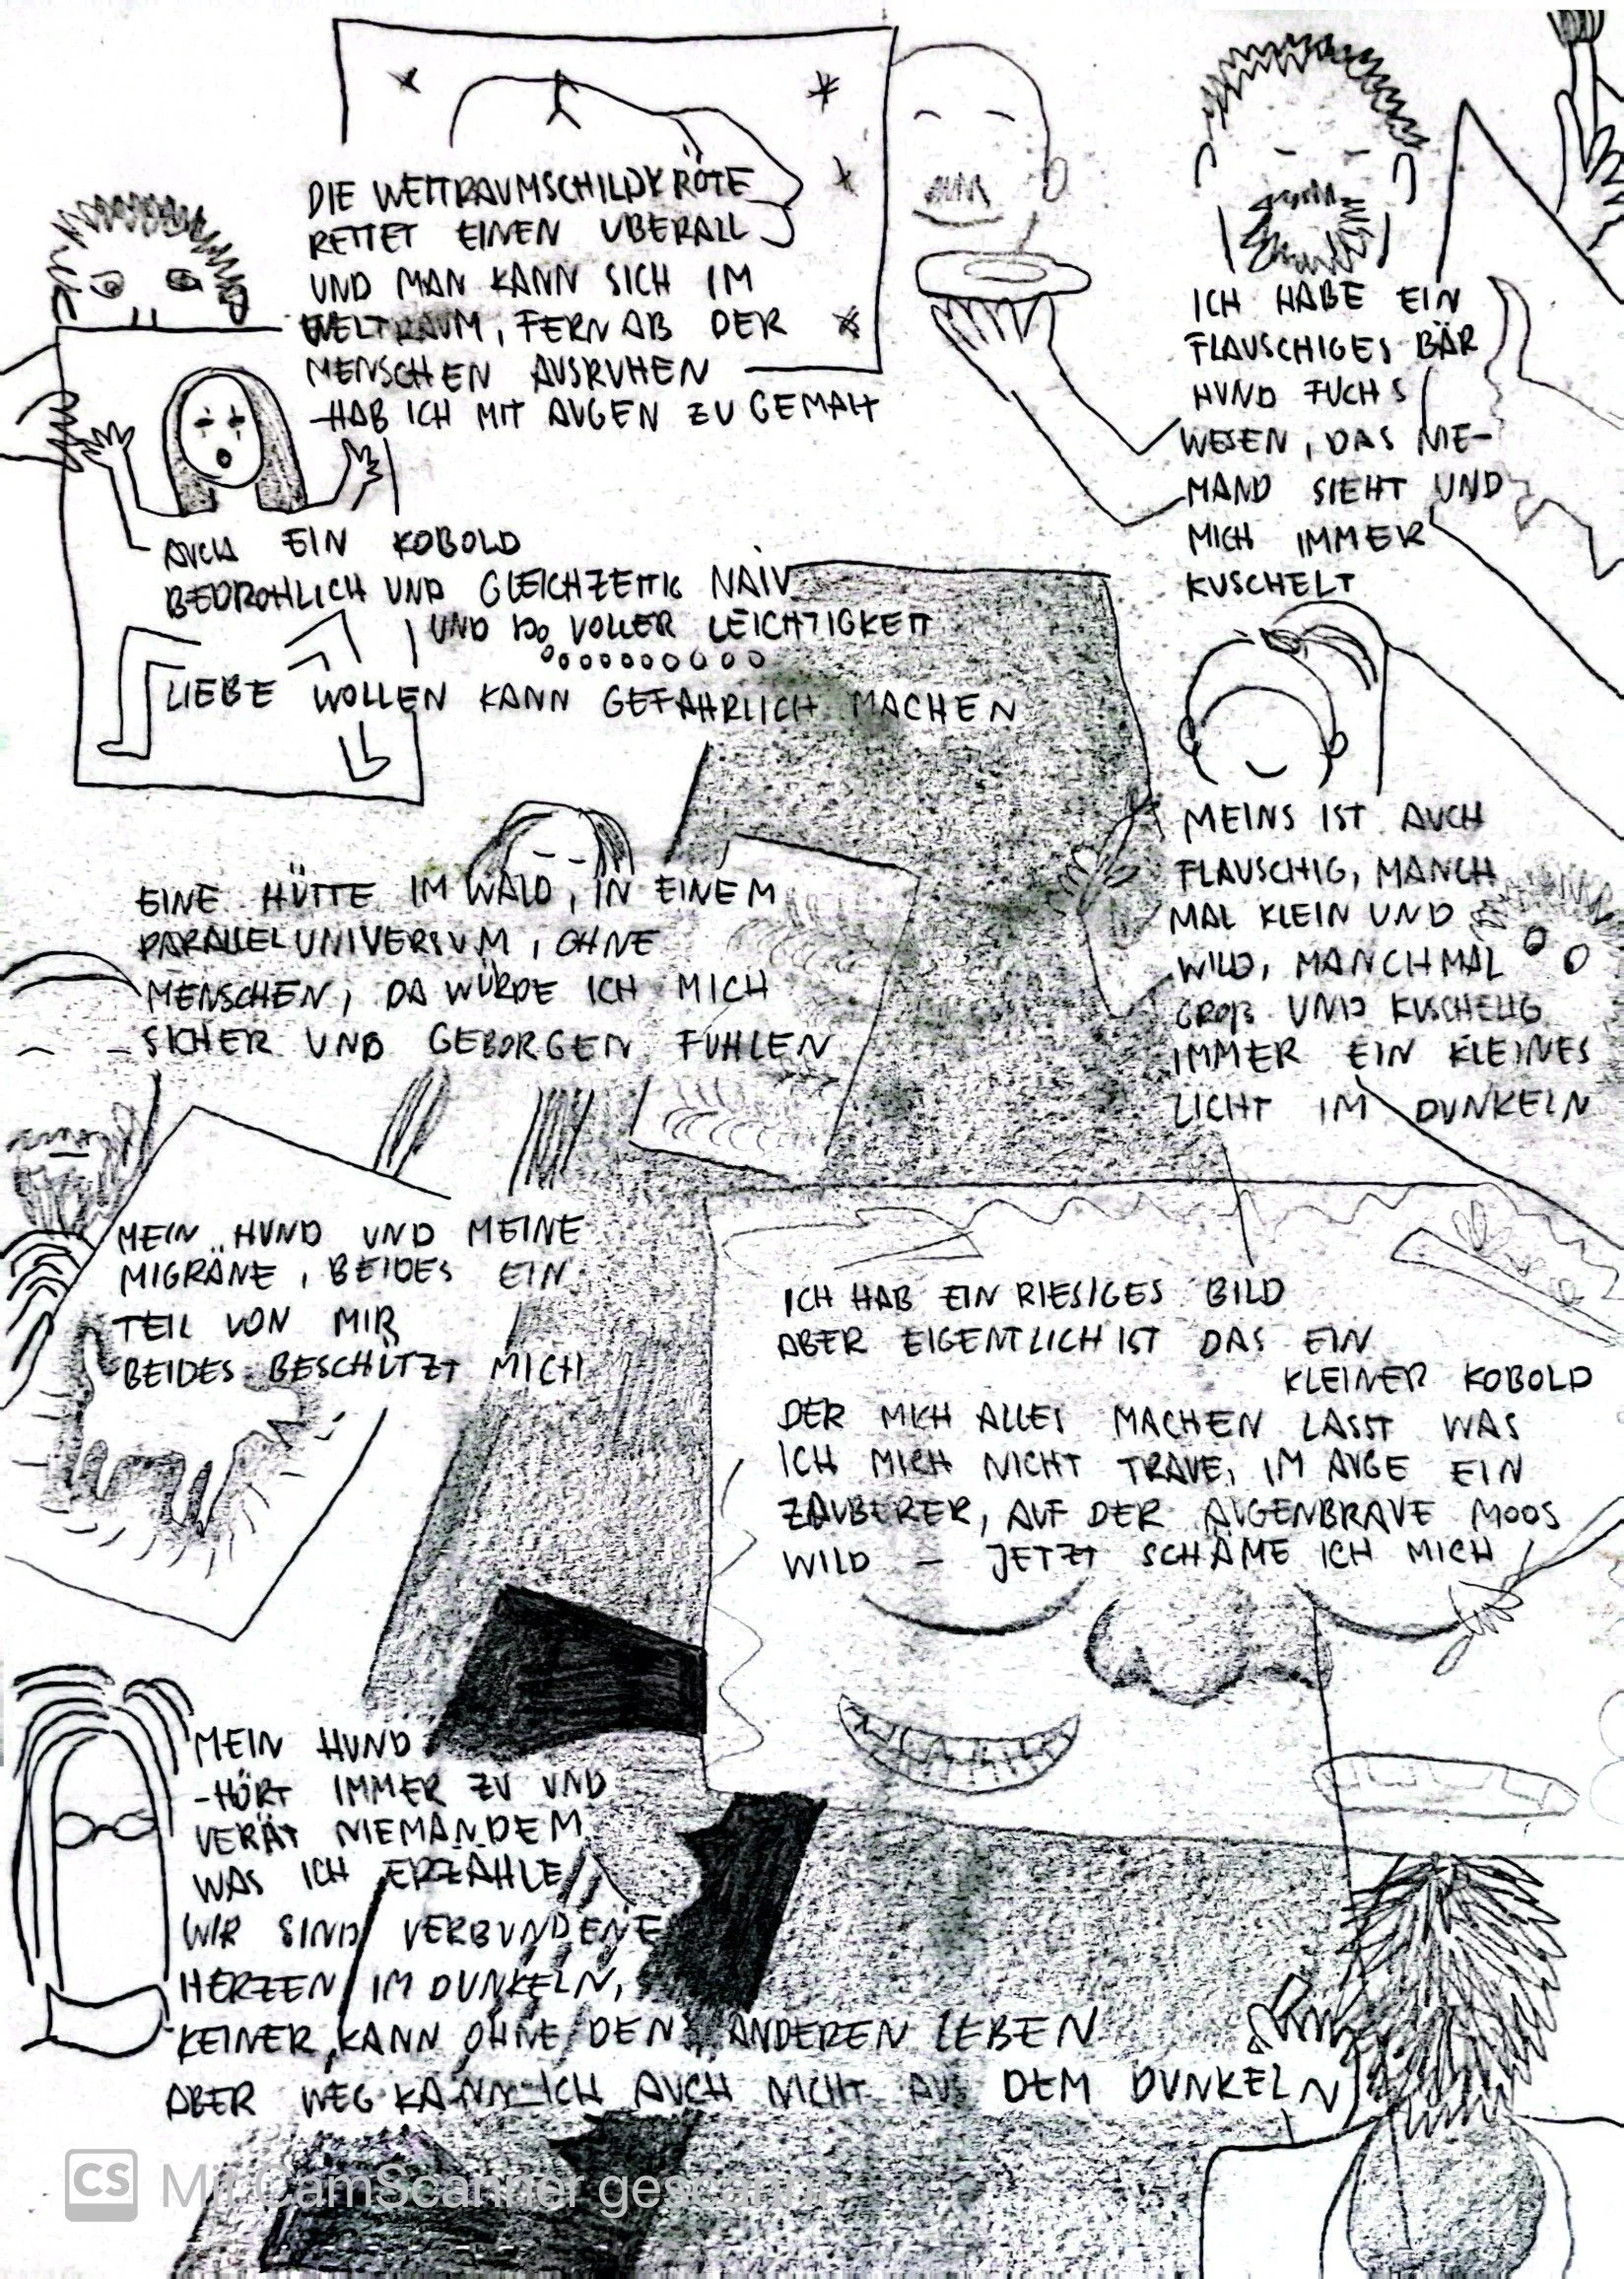 DIE WELTRAUMSCHILDKRÖTE
RETTET EINEN ÜBERALL
UND MAN KANN SICH IM
WELTRAUM, FERN AB DER
MENSCHEN AUSRUHEN
-HAB ICH MIT AUGEN ZU GEMALT
ICH HABE EIN
FLAUSCHIGES BÄR
HUND FUCHS
WESEN, DAS NIE-
MAND SIEHT UND
MICH IMMER
KUSCHELT
AUCH EIN KOBOLD
BEDROHLICH UND GLEICHZEITIG NAIV
UND SO VOLLER LEICHTIGKEIT
LIEBE WOLLEN KANN GEFÄHRLICH MACHEN
MEINS IST AUCH
FLAUSCHIG, MANCH
MAL KLEIN UND
WILD, MANCHMAL
GROß UND KUSCHELIG
IMMER EIN KLEINES
LICHT IM DUNKELN
EINE HÜTTE IM WALD, IN EINEM
PARALLELUNIVERSUM, OHNE
MENSCHEN, DA WÜRDE ICH MICH
SICHER UND GEBORGEN FÜHLEN
MEIN HUND UND MEINE
MIGRÄNE, BEIDES EIN
TEIL VON MIR
BEIDES BESCHÜTZT MICH
ICH HAB EIN RIESIGES BILD
ABER EIGENTLICH IST DAS EIN
KLEINER KOBOLD
DER MICH ALLES MACHEN LÄSST WAS
ICH MICH NICHT TRAUE, IM AUGE EIN
ZAUBERER, AUF DER AUGENBRAUE MOOS
WILD - JETZT SCHÄME ICH MICH
MEIN HUND
-HÖRT IMMER ZU UND
VERÄT NIEMANDEM
WAS ICH ERZÄHLE
WIR SIND VERBUNDENE
HERZEN IM DUNKELN,
KEINER KANN OHNE DEN ANDEREN LEBEN
ABER WEG KANN ICH AUCH NICHT AUS DEM DUNKELN
CS Mit CamScanner gescannt